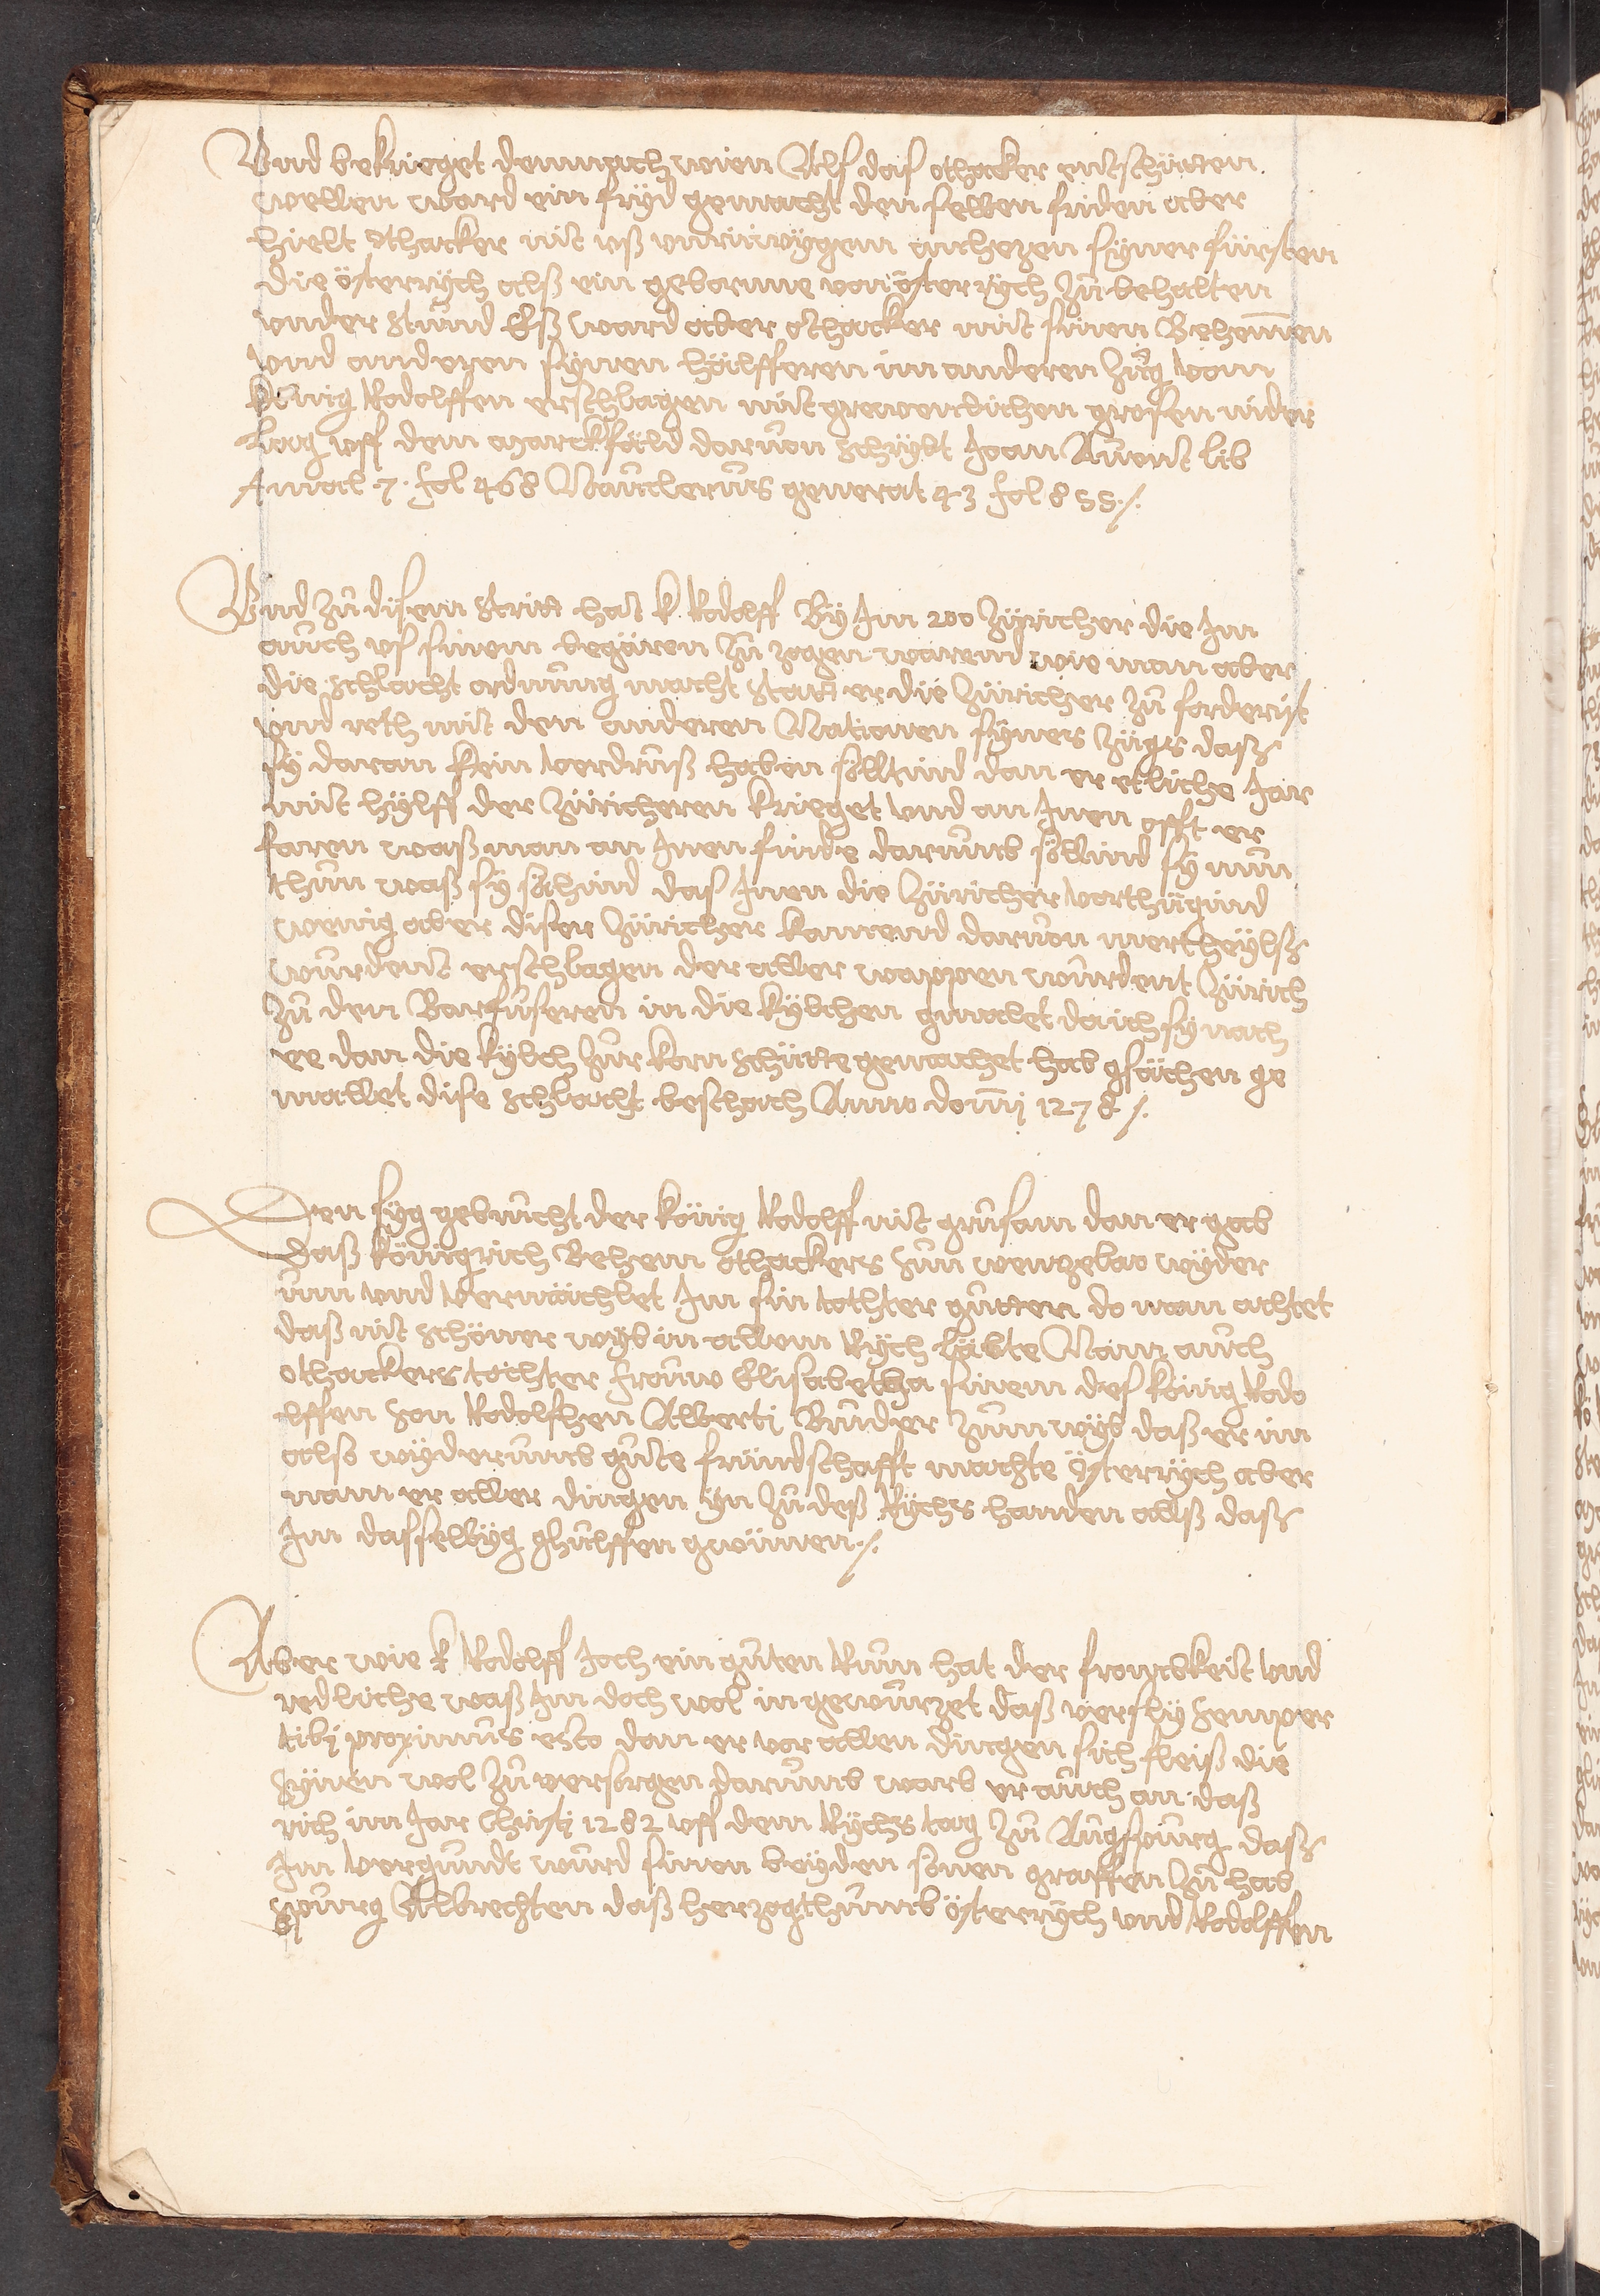 Vnd bekrieget demnach wien Als das othacker entschütten
wellen ward ein fryd gemacht den selben friden aber
hielt othacker nit uß anhezen syner fürsten
die österrych alß ein geborne von österrych zů behalten
vnder stůnd Eß ward aber othacker mit sinen Behemen
vnd anderen synen hälfferen im anderen zůg vom
künig Rodolffen erschlagen mit grosen nider
lag vff dem marckfäld daruon schrybt Joan Auent lib
Annal 7. fol 468 Nauclerus generat 43 fol 855 ./.
Vnd zů disem stritt hat k Rodolff By Jm 200 züricher die Jm
auch vf sinem begären zů zogen warend wie man aber
die schlacht ordnung macht statt er die züricher zů forderist
vnd reth mit den anderen Nationen synes zügs daß
sy daran kein verdruß haben solltind dan er etliche Jar
mit hylff der züricheren krieget vnd an Jnen offt er
faren waß man an Jnen finde darumb söllind sy nun
thůn waß sy sähind das Jnen die züricher vorthügind
wenig aber diser züricher kamend daruon mertheylß
wurdent erschlagen der aller wappen wurdent zürich
zů den Barfůseren in die kylchen gmalet dá ich sy nach
ee dan die kylch zur korn schütte gemachet hab gsächen ge
mallet dise schlacht beschach Anno domini 1278 ./.
Den syg gebrucht der könig Rodolff nit grusam dan er gab
daß königrich Behem othackers sun wenzelao wyder
um vnd vermächlet Jm sin tochter gůtten do man achtet
daß nit schöner wyb in allem Rych läbte Nam auch
othackers tochter frouw Elisabetha sinem des könig Rodo
lffen son Rodolfhen Alberti Brůder zum wyb daß er im
alß wyderumb gůte fründschafft machte österrych aber
nam er aller dingen yn zů deß Rychs handen allß daß
Jm dasselbig ghulffen gwünnen ./.
Aber wie k Rodolff Joch ein gůten Rům hat der frombkeit vnd
redliche waß Jm doch wol in gewurzet daß versly semper
tibi proximus esto dan er vor allen dingen sich fleiß die
synen wol zů versorgen darumb warb er auch an daß
rich im Jar christi 1282 vff dem Rychs tag zů Augspurg daß
Jm vergundt wurd sinen beyden sönen graffen zů hab
spurg Albrechten daß herzogthumb österrych vnd Rodolffen